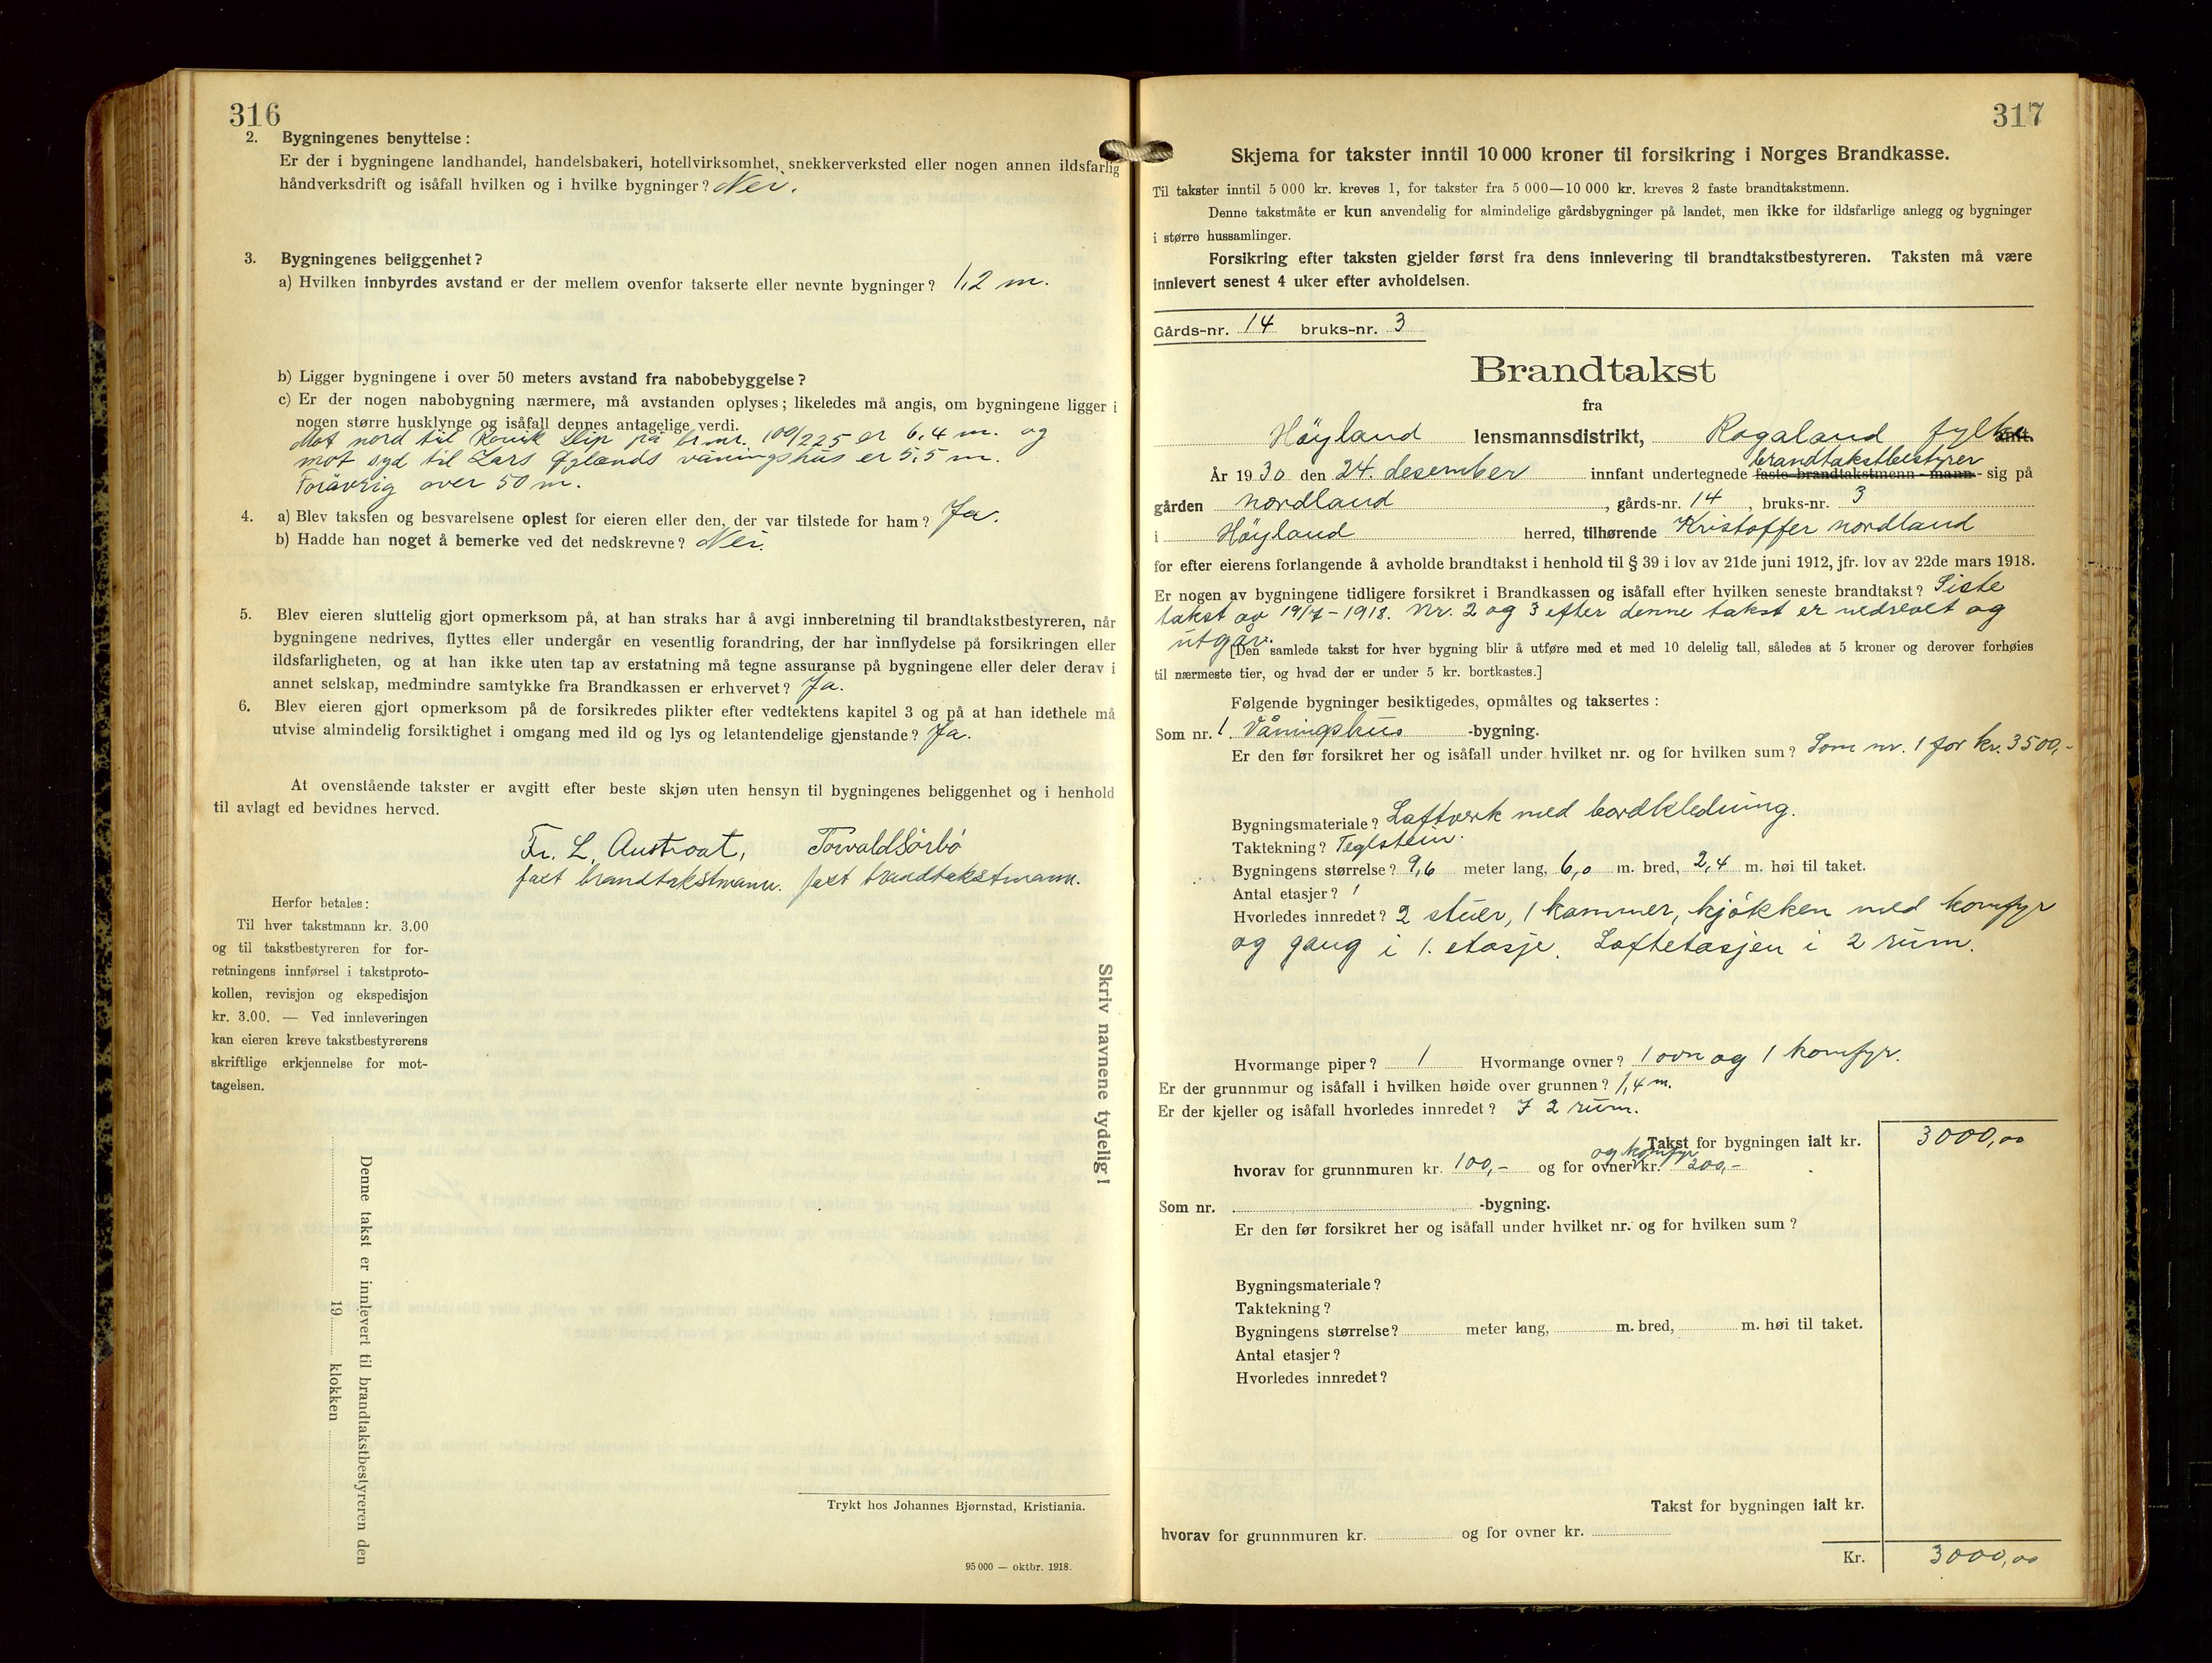 316
2. Bygningenes benyttelse:
Er der i bygningene landhandel, handelsbakeri, hotellvirksomhet, snekkerverksted eller nogen annen ildsfarlig
håndverksdrift og isåfall hvilken og i hvilke bygninger? Nei.
3. Bygningenes beliggenhet?
a) Hvilken innbyrdes avstand er der mellem ovenfor takserte eller nevnte bygninger? 1,2 m.
b) Ligger bygningene i over 50 meters avstand fra nabobebyggelse?
c) Er der nogen nabobygning nærmere, må avstanden oplyses; likeledes må angis, om bygningene ligger i
nogen større husklynge og isåfall dennes antagelige verdi.
Mot nord til slip på br.nr. 109/225 er 6,4 m. og
mot syd til Lars Øglænds våningshus er 5,5 m.
Forøvrig over 50 m.
4. a) Blev taksten og besvarelsene oplest for eieren eller den, der var tilstede for ham? Ja.
b) Hadde han noget å bemerke ved det nedskrevne? Nei.
5. Blev eieren sluttelig gjort opmerksom på, at han straks har å avgi innberetning til brandtakstbestyreren, når
bygningene nedrives, flyttes eller undergår en vesentlig forandring, der har innflydelse på forsikringen eller
ildsfarligheten, og at han ikke uten tap av erstatning må tegne assuranse på bygningene eller deler derav i
annet selskap, medmindre samtykke fra Brandkassen er erhvervet? Ja.
6. Blev eieren gjort opmerksom på de forsikredes plikter efter vedtektens kapitel 3 og på at han idethele må
utvise almindelig forsiktighet i omgang med ild og lys og letantendelige gjenstande? Ja.
At ovenstående takster er avgitt efter beste skjøn uten hensyn til bygningenes beliggenhet og i henhold
til avlagt ed bevidnes herved.
Fr. L. Austrat, Torvald Sörbö
fast brandtakstmann. fast brandtakstmann.
Herfor betales:
Til hver takstmann kr. 3.00
og til takstbestyreren for for-
retningens innførsel i takstproto-
kollen, revisjon og ekspedisjon
kr. 3.00. — Ved innleveringen
kan eieren kreve takstbestyrerens
skriftlige erkjennelse for mot-
tagelsen.
Skriv navnene tydelig!
Denne takst er innlevert til brandtakstbestyreren den
19 klokken
Trykt hos Johannes Bjørnstad, Kristiania.
95 000 — oktbr. 1918.
317
Skjema for takster inntil 10 000 kroner til forsikring i Norges Brandkasse.
Til takster inntil 5 000 kr. kreves 1, for takster fra 5 000—10 000 kr. kreves 2 faste brandtakstmenn.
Denne takstmåte er kun anvendelig for almindelige gårdsbygninger på landet, men ikke for ildsfarlige anlegg og bygninger
i større hussamlinger.
Forsikring efter taksten gjelder først fra dens innlevering til brandtakstbestyreren. Taksten må være
innlevert senest 4 uker efter avholdelsen.
Gårds-nr. 14 bruks-nr. 3
Brandtakst
fra
Höyland lensmannsdistrikt, Rogaland fylke amt.
brandtakstbestyrer
År 1930 den 24. desember innfant undertegnede faste brandtakstmenn - mann - sig på
gården Nordland, gårds-nr. 14, bruks-nr. 3
i Höyland herred, tilhørende Kristoffer Nordland
for efter eierens forlangende å avholde brandtakst i henhold til § 39 i lov av 21de juni 1912, jfr. lov av 22de mars 1918.
Er nogen av bygningene tidligere forsikret i Brandkassen og isåfall efter hvilken seneste brandtakst? Siste
takst av 19/7-1918. Nr. 2 og 3 efter denne takst er nedrevet og
utgår.
[Den samlede takst for hver bygning blir å utføre med et med 10 delelig tall, således at 5 kroner og derover forhøies
til nærmeste tier, og hvad der er under 5 kr. bortkastes.]
Følgende bygninger besiktigedes, opmåltes og taksertes:
Som nr. 1 Våningshus -bygning.
Er den før forsikret her og isåfall under hvilket nr. og for hvilken sum? Som nr. 1 for kr. 3500,-
Bygningsmateriale? Laftverk med bordkledning.
Taktekning? Teglstein.
Bygningens størrelse? 9,6 meter lang, 6,0 m. bred, 2,4 m. høi til taket.
Antal etasjer? 1
Hvorledes innredet? 2 stuer, 1 kammer, kjökken med komfyr
og gang i 1. etasje. Loftetasjen i 2 rum.
Hvormange piper? 1 Hvormange ovner? 1 ovn og 1 komfyr.
Er der grunnmur og isåfall i hvilken høide over grunnen? 1,4 m.
Er der kjeller og isåfall hvorledes innredet? I 2 rum.
Takst for bygningen ialt kr. 3000,00
og komfyr
hvorav for grunnmuren kr. 100,- og for ovner kr. 200,-
Som nr. -bygning.
Er den før forsikret her og isåfall under hvilket nr. og for hvilken sum?
Bygningsmateriale?
Taktekning?
Bygningens størrelse? meter lang, m. bred, m. høi til taket.
Antal etasjer?
Hvorledes innredet?
Takst for bygningen ialt kr.
hvorav for grunnmuren kr. og for ovner kr.
Kr. 3000,00